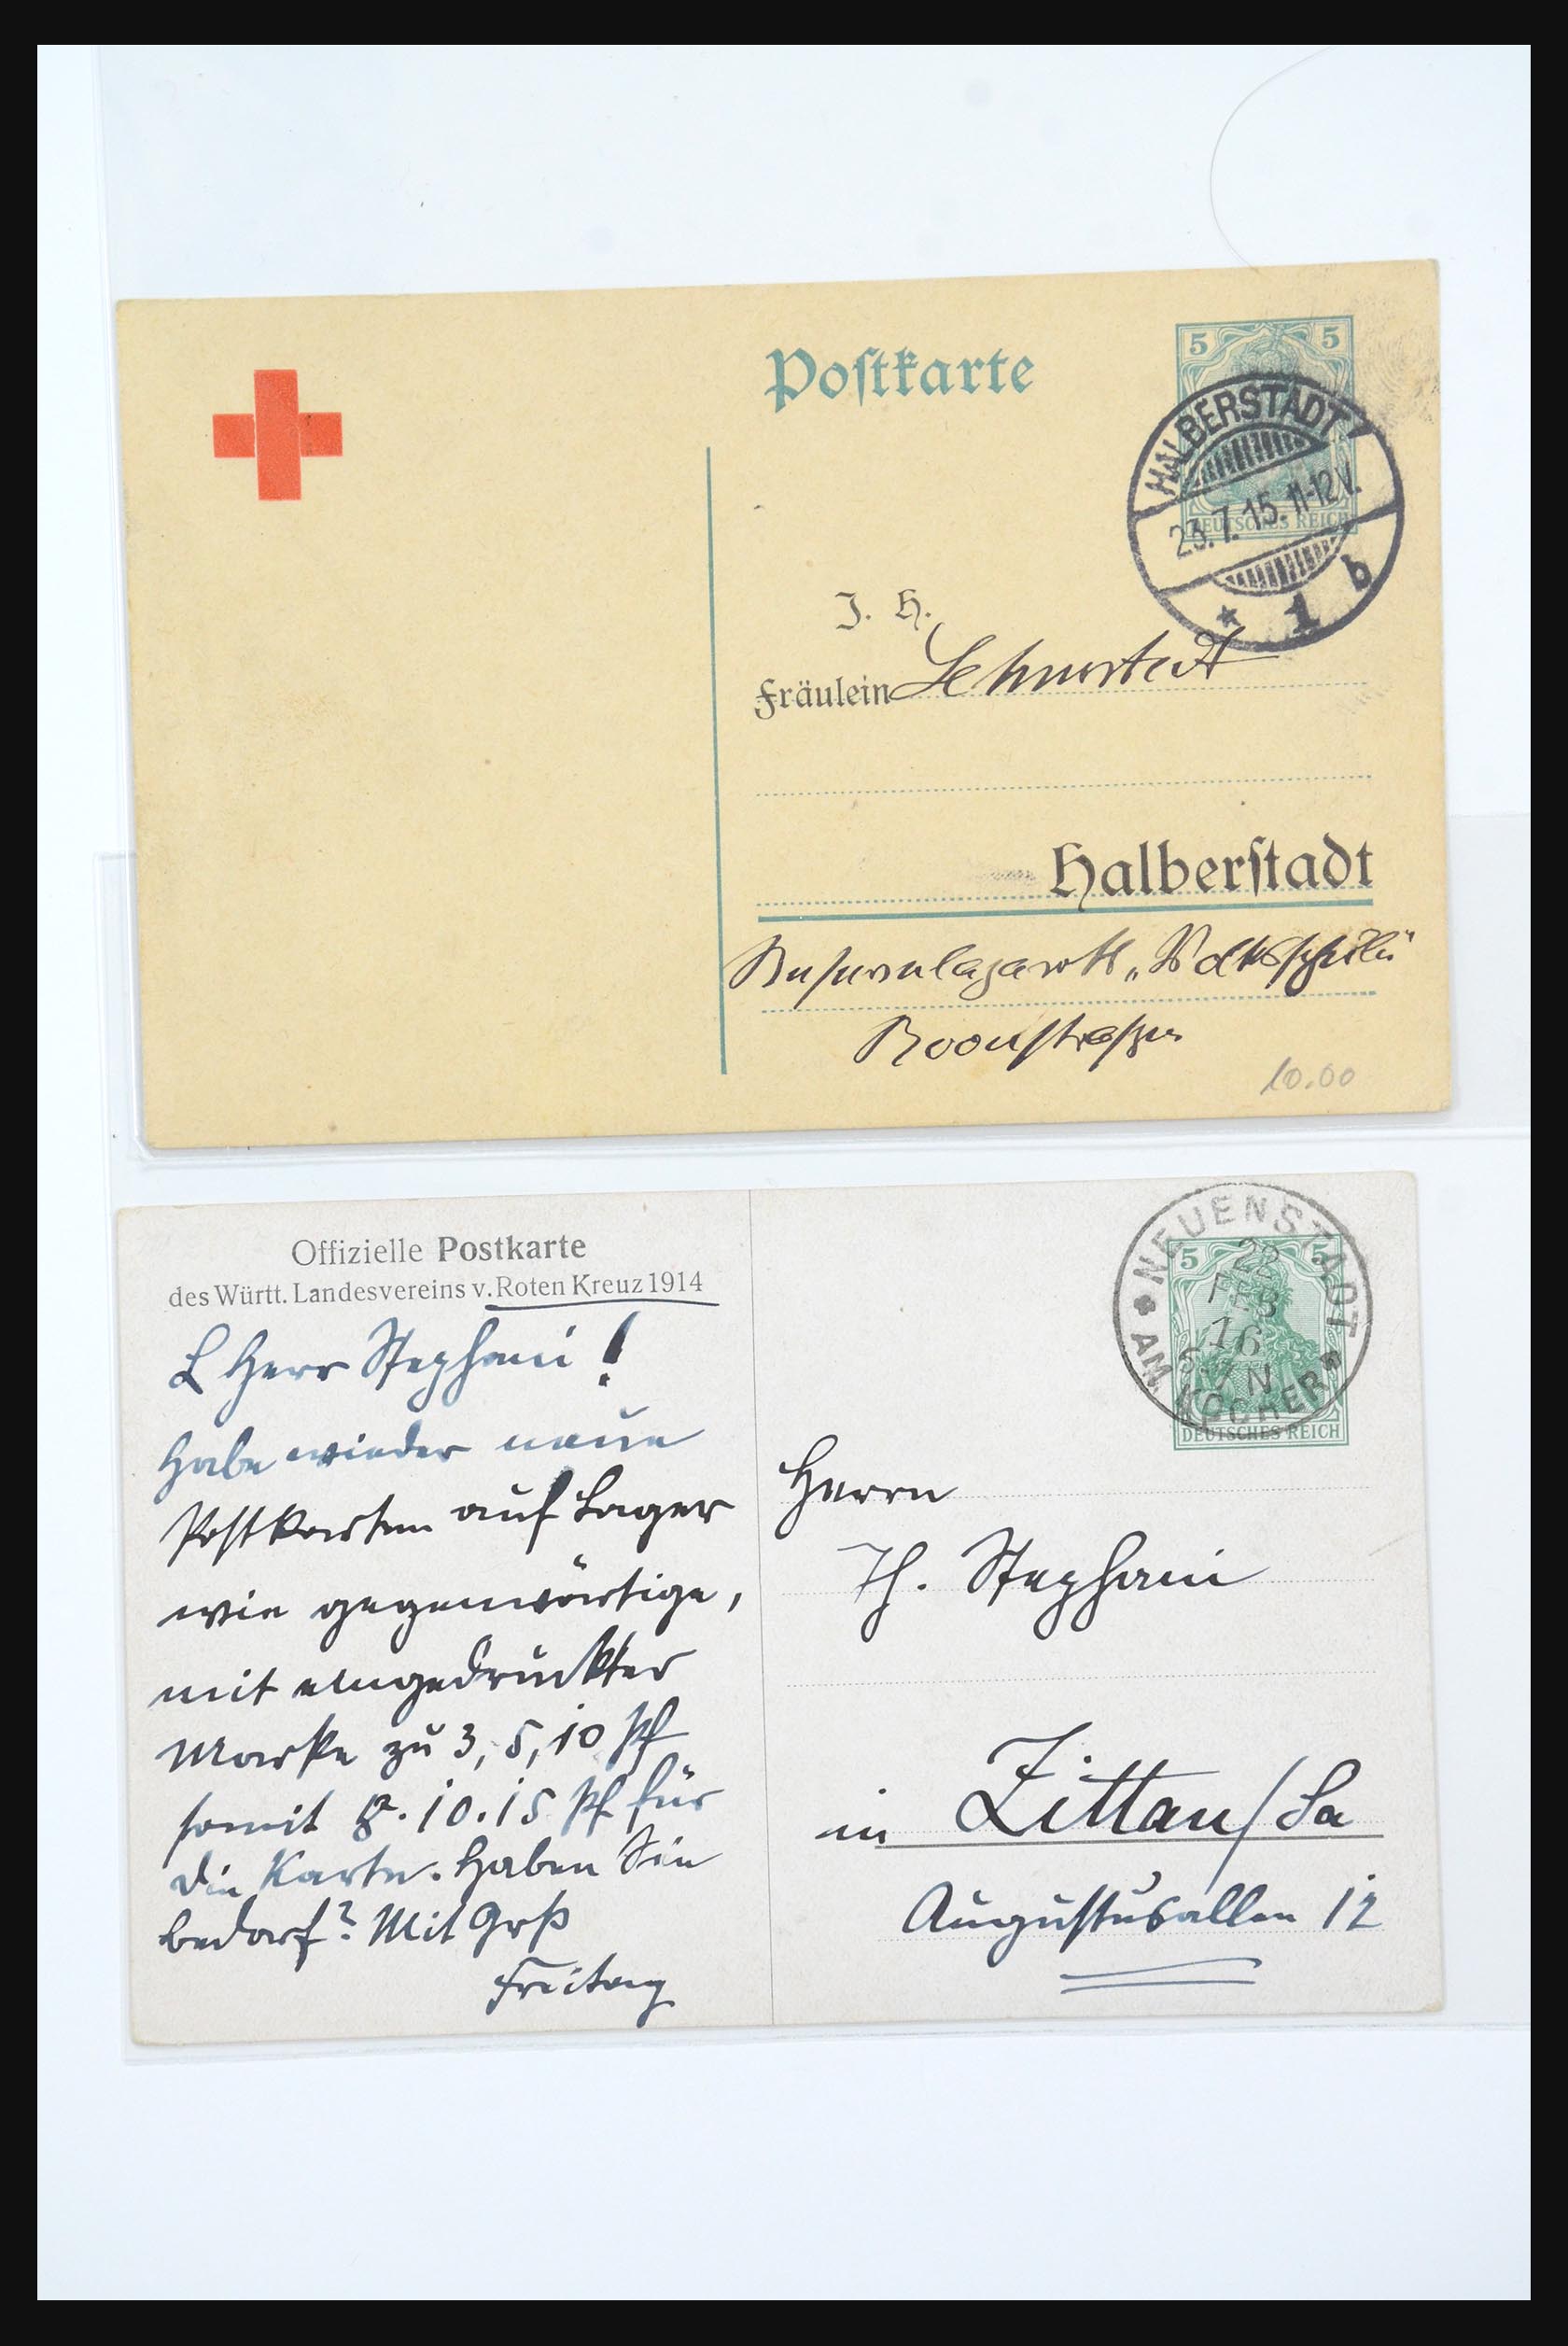 Postkarte
5 5
DEUTSCHES REICH
HALBERSTADT
23.7.15.11-12V.
* 1 b
J. H.
Fräulein
Halberstadt
Reservelazarett „Volksschule"
Roonstraße
10.00
Offizielle Postkarte
des Württ. Landesvereins v. Roten Kreuz 1914
L Herr Stephani!
Habe wieder neue
Postkarten auf Lager
wie gegenwärtige,
mit eingedruckter
Marke zu 3, 5, 10 Pf
somit 8. 10. 15 Pf für
die Karte. Haben Sie
bedarf? Mit Grß
Freitag
5 5
DEUTSCHES REICH
NEUENSTADT
22
FEB
16
5-7 N
AM KOCHER
Herrn
Th. Stephani
in Zittau/Sa
Augustusallee 12